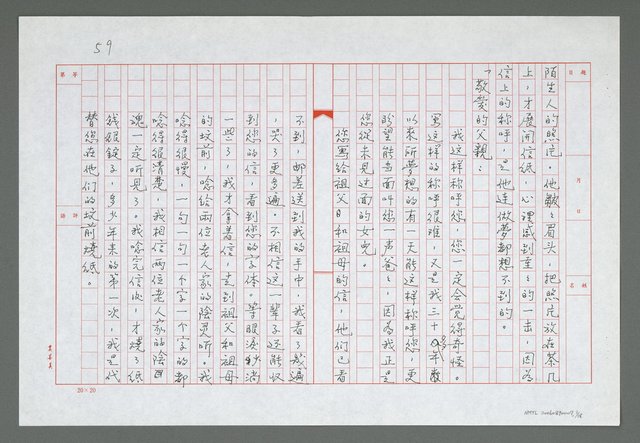 59
題目
月
日
姓名
陌生人的照片。他皺了眉頭，把照片放在茶几
上，才展開信紙，心裡感到重重的一击，因為
信上的称呼，是他連做夢都想不到的。
「敬愛的父親：
我这样的称呼您，您一定会覺得奇怪。
寫这样的称呼很難，又是我三十年
以來所夢想的有一天能这样称呼您，更
盼望能当面叫您一声爸爸，因為我正是
您從未見过面的女兒。
您寫給祖父母和祖母的信，他們已看
不到，郵差送到我的手中，我看了幾遍
，哭了更多遍。不相信这一輩子还能收
到您的信，看到您的字体。等眼淚稍淌
一些了，我才拿着信，走到祖父和祖母
的坟前，唸給兩位老人家的陰灵听。我
唸得很慢，一句一句一个字一个字的都
唸得很清楚，我相信兩位老人家的陰
魂一定听見了。我唸完信后，才燒了紙
錢銀錠子，多少年來的第一次，我是代
替您在他們的坟前燒紙。
等第
評語
20×20